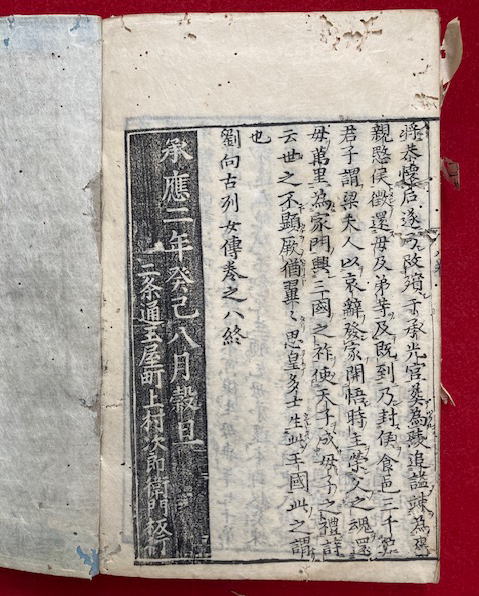 將恭懷后遂乃改殯于承光宮葬為陵追謚竦為褒
親愍侯徵還母及弟等及既到乃封侯食邑三千
君子謂梁夫人以哀辭發家開悟時主榮父之魂還
母萬里為家門興三國之祚使天子成母子之禮詩
云世之不顯厥猶翼〻思皇多士生此王國此之謂
也
劉向古列女傳卷之八終
承應二年癸巳八月穀旦
二条通玉屋町上村次郎衛門板行